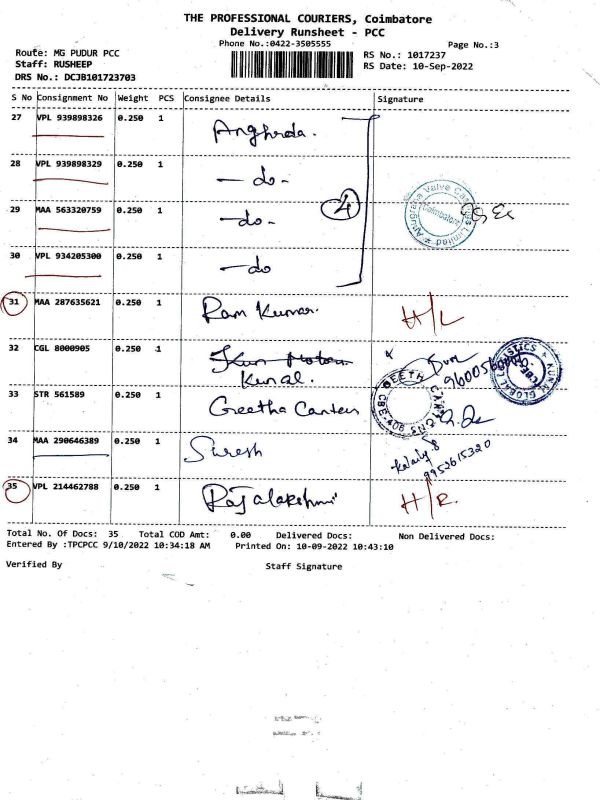 THE PROFESSIONAL COURIERS, Coimbatore
Delivery Runsheet - PCC
Phone No.:0422-3505555
Page No.:3
Route: MG PUDUR PCC
RS No.: 1017237
Staff: RUSHEEP
RS Date: 10-Sep-2022
DRS No.: DCJB101723703
S No Consignment No Weight PCS Consignee Details Signature
27 VPL 939898326 0.250 1
28 VPL 939898329 0.250 1 - do -
29 MAA 563320759 0.250 1 - do -
4
30 VPL 934205300 0.250 1 - do
31 MAA 287635621 0.250 1 Ram Kumar. H/L
32 CGL 8000905 0.250 1 Kunal.
33 STR 561589 0.250 1 Geetha Canteen
34 MAA 290646389 0.250 1 Suresh
9952615320
35 VPL 214462788 0.250 1 Rajalakshmi H/R.
Total No. Of Docs: 35 Total COD Amt: 0.00 Delivered Docs: Non Delivered Docs:
Entered By :TPCPCC 9/10/2022 10:34:18 AM Printed On: 10-09-2022 10:43:10
Verified By Staff Signature